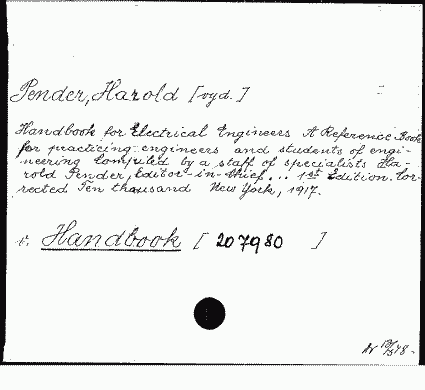 Pender, Harold [vyd.]
Handbook for Electrical Engineers A Reference Book
for practicing engineers and students of engi-
neering Compiled by a staff of specialists Ha-
rold Pender, Editor-in-Chief... 1st Edition. Cor-
rected Ten thousand New York, 1917.
v. Handbook [207980 ]